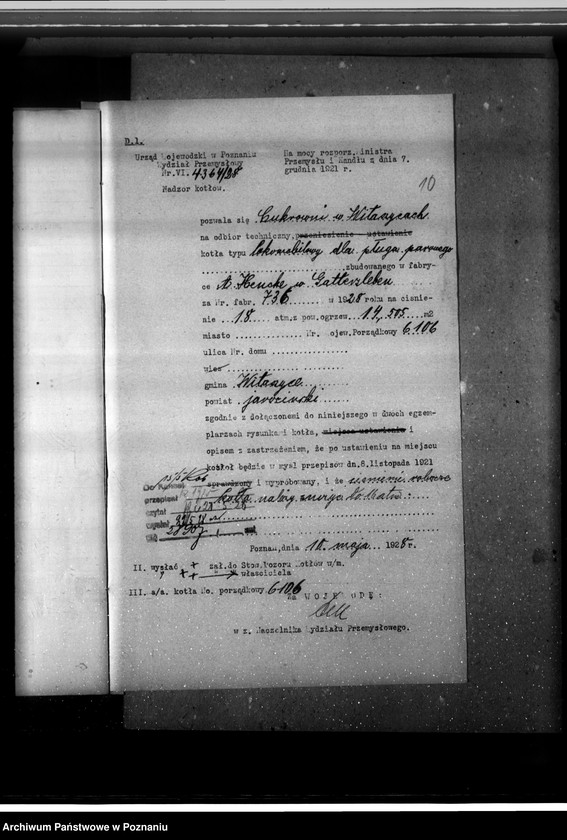 D.1.
Urząd Wojewódzki w Poznaniu
Wydział Przemysłowy
Nr.VI. 4364/28
Nadzor kotłów.
Na mocy rozporz. Ministra
Przemysłu i Handlu z dnia 7.
grudnia 1921 r.
10
pozwala się Cukrowni w Witaszycach
na odbior techniczny, przeniesienie - ustawienie
kotła typu lokomobilowy dla pługa parowego
zbudowanego w fabry-
ce A. Heucke w Gatersleben
za Nr. fabr. 736 w 1928 roku na ciśnie-
nie 18 atm.z pow.ogrzew. 14,505 m2
miasto Nr. ojew.Porządkowy 6106
ulica Nr. domu
wieś
gmina Witaszyce
powiat jarociński
zgodnie z dołączonemi do niniejszego w dwoch egzem-
plarzach rysunku i kotła, miejsca ustawienia i
opisem z zastrzeżeniem, że po ustawieniu na miejscu
kotoł będzie w myśl przepisów dn.8.listopada 1921
sprawdzony i wyprobowany, i że
kotła należy
przepisał
czytał
Poznań,dnia 18 maja 1928 r.
II. wysłać + zał.do Stow.Dozoru Kotłów w/m.
++ właściciela
III. a/a. kotła No. porządkowy 6106
Za WOJEWODĘ:
w z. Naczelnika Wydziału Przemysłowego.
Archiwum Państwowe w Poznaniu